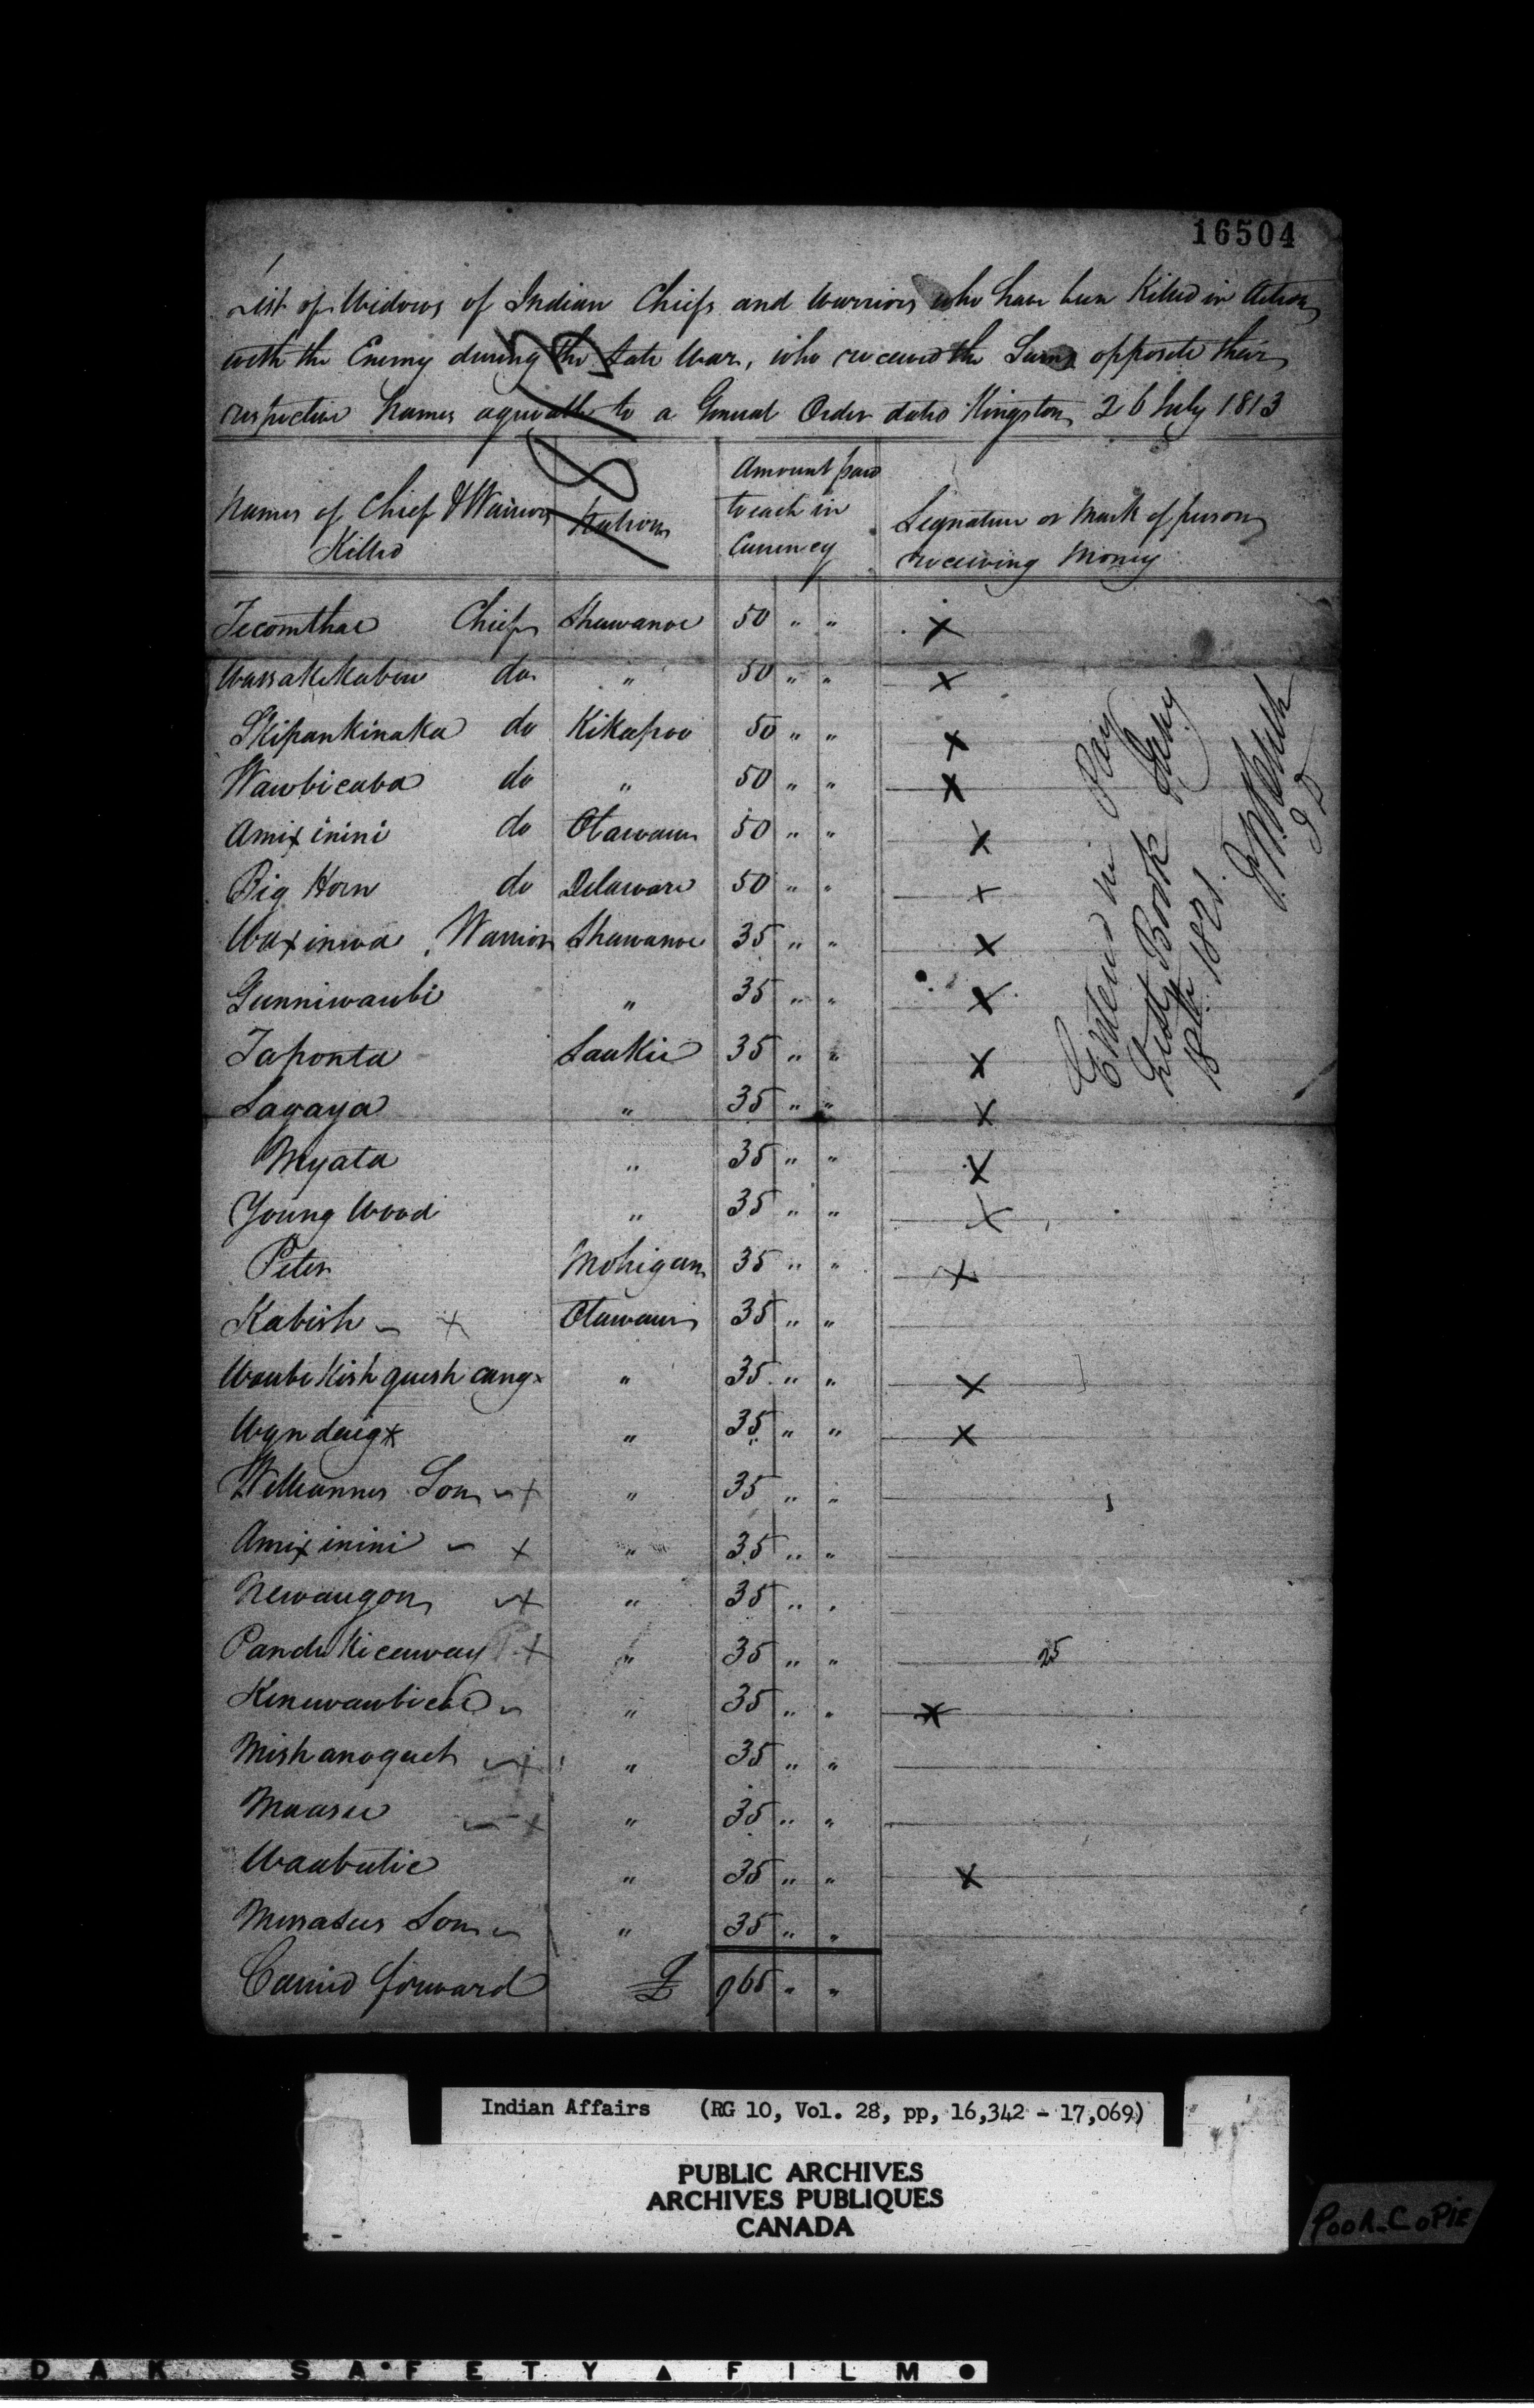 16504
List of Widows of Indian Chiefs and Warriors who have been Killed in Action
with the Enemy during the late War, who received the Sums opposite their
respective Names agreeable to a General Order dated Kingston 26 July 1813
Names of Chief & Warriors Killed
Nation
Amount paid to each in Currency
Signature or Mark of person receiving Money
Tecomthae Chief Shawanoe 50 " " x
Wassakekabow do " 50 " " x
Skipankinaka do Kikapoo 50 " " x
Wawbicaba do " 50 " " x
Amixinini do Otawawa 50 " " x
Big Horn do Delaware 50 " " x
Waxinwa Warrior Shawanoe 35 " " x
Gunniwaubi " 35 " " x
Taponta Saukie 35 " " x
Sagaya " 35 " " x
Myata " 35 " " x
Young Wood " 35 " " x
Peter Mohigan 35 " " x
Kabish x Otawawa 35 " "
Waubi Kish quesh cung x " 35 " " x
Wyndeig x " 35 " " x
Son x " 35 " "
Amixinini x " 35 " "
Newaugon x " 35 " "
x " 35 " " 25
" 35 " " x
Mishanoquet x " 35 " "
Maasee x " 35 " "
Waubutie " 35 " " x
Son " 35 " "
Carried forward £ 965 " "
Entered in
Book
18th 1821.
Indian Affairs (RG 10, Vol. 28, pp, 16,342 - 17,069)
PUBLIC ARCHIVES
ARCHIVES PUBLIQUES
CANADA
POOR COPIE
DAK SAFETY ▲ FILM